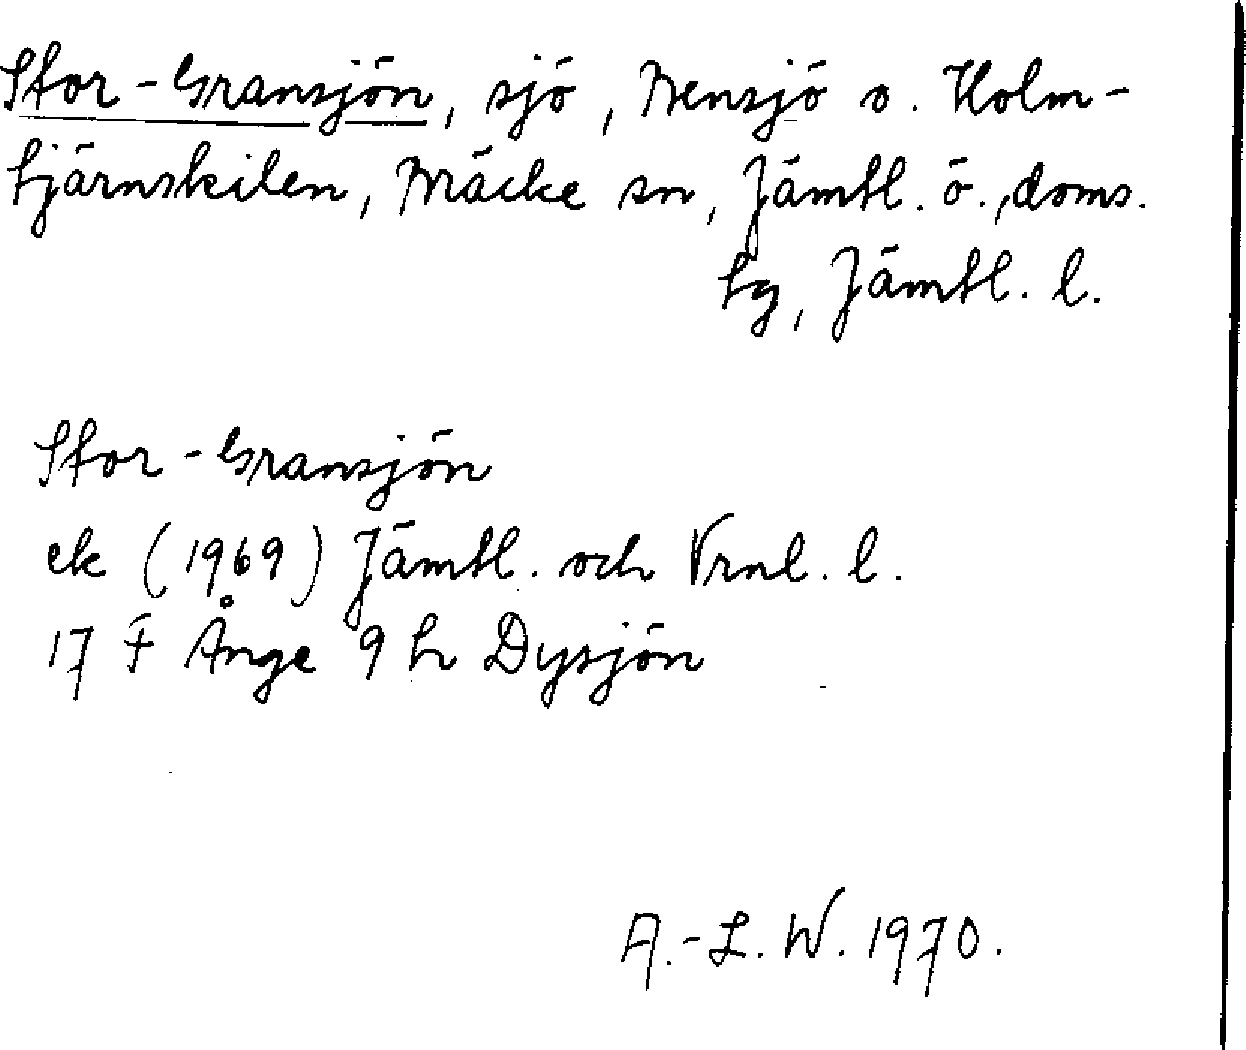 Stor-Gransjön, sjö, Bensjö o. Holm-
tjärnskilen, Bräcke sn, Jämtl. ö., doms.
tg, Jämtl. l.
Stor-Gransjön
ek (1969) Jämtl. och Vrnl. l.
17 F Ånge 9 h Dysjön
A.-L. W. 1970.